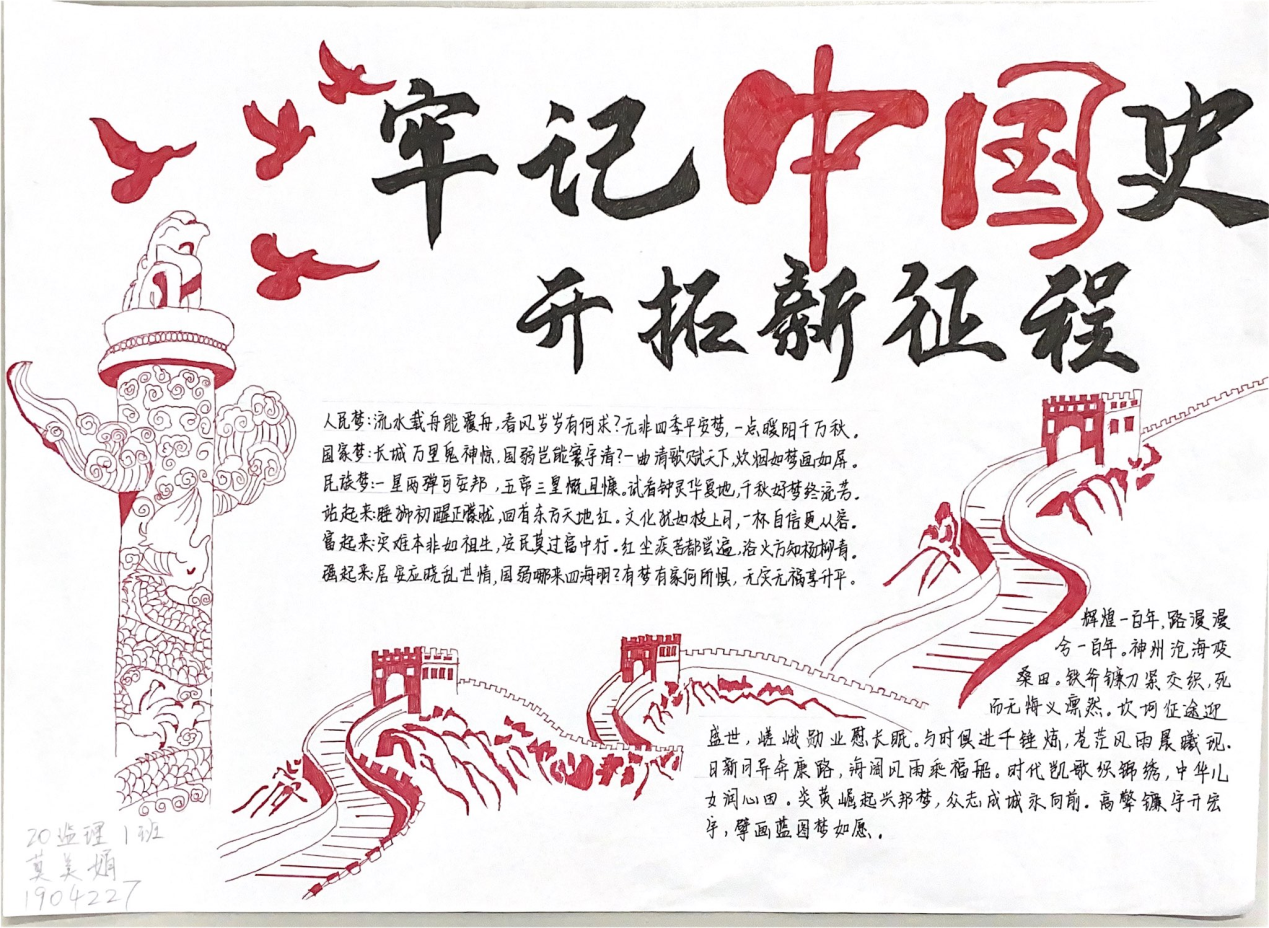 牢记中国史
开拓新征程
人民梦:流水载舟能覆舟,春风岁岁有何求?无非四季平安梦,一点暖阳千万秋。
国家梦:长城万里鬼神惊,国弱岂能寰宇清?一曲清歌赋天下,炊烟如梦画如屏。
民族梦:一星两弹可安邦,五帝三皇慨且慷。试看钟灵华夏地,千秋好梦终流芳。
站起来:睡狮初醒正朦胧,回首东方天地红。文化犹如枝上月,一杯自信更从容。
富起来:灾难本非如祖生,安民莫过富中行。红尘疾苦都尝遍,浴火方知杨柳青。
强起来:居安应晓乱世情,国弱哪来四海明?有梦有家何所惧,无灾无祸享升平。
辉煌一百年,路漫漫
今一百年。神州沧海变
桑田。铁斧镰刀紧交织,死
而无悔义凛然。坎坷征途迎
盛世,嵯峨勋业慰长眠。与时俱进千锤炼,苍茫风雨晨曦现.
日新月异奔康路,海阔风雨乘福船。时代凯歌织锦绣,中华儿
女润心田。炎黄崛起兴邦梦,众志成城永向前。高擎镰斧开宏
宇,擘画蓝图梦如愿。
20监理1班
莫美娟
1904227